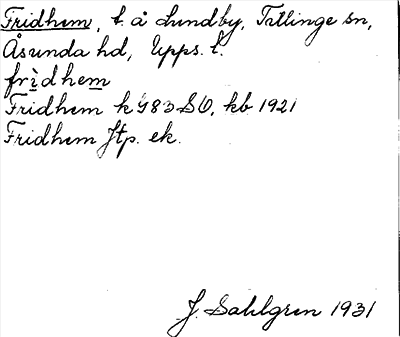 Fridhem, t. å Lundby, Tillinge sn,
Åsunda hd, Upps. l.
frìdhem
Fridhem k 983 SO, kb 1921
Fridhem Jtp. ek.
J. Sahlgren 1931